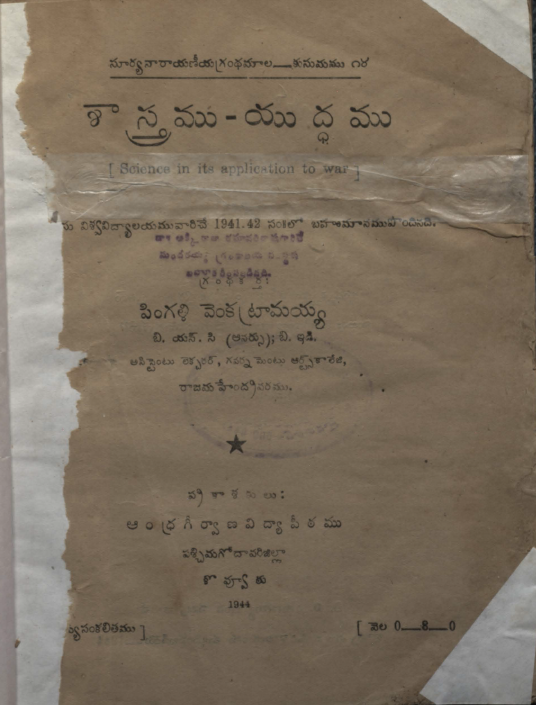 సూర్యనారాయణీయగ్రంథమాల—కుసుమము ౧౪
శాస్త్రము-యుద్ధము
[ Science in its application to war ]
విశ్వవిద్యాలయమువారిచే 1941.42 సం॥లో బహుమానముపొందినది.
గ్రంథకర్త:
పింగళి వెంకట్రామయ్య
బి. యస్. సి (ఆనర్సు); బి. ఇడి.
అసిస్టెంటు లెక్చరర్, గవర్న మెంటు ఆర్ట్సుకాలేజి,
రాజమహేంద్రవరము.
ప్రకాశకులు:
ఆంధ్రగీర్వాణవిద్యాపీఠము
పశ్చిమగోదావరిజిల్లా
కొవ్వూరు
1944
[ వెల 0—8—0